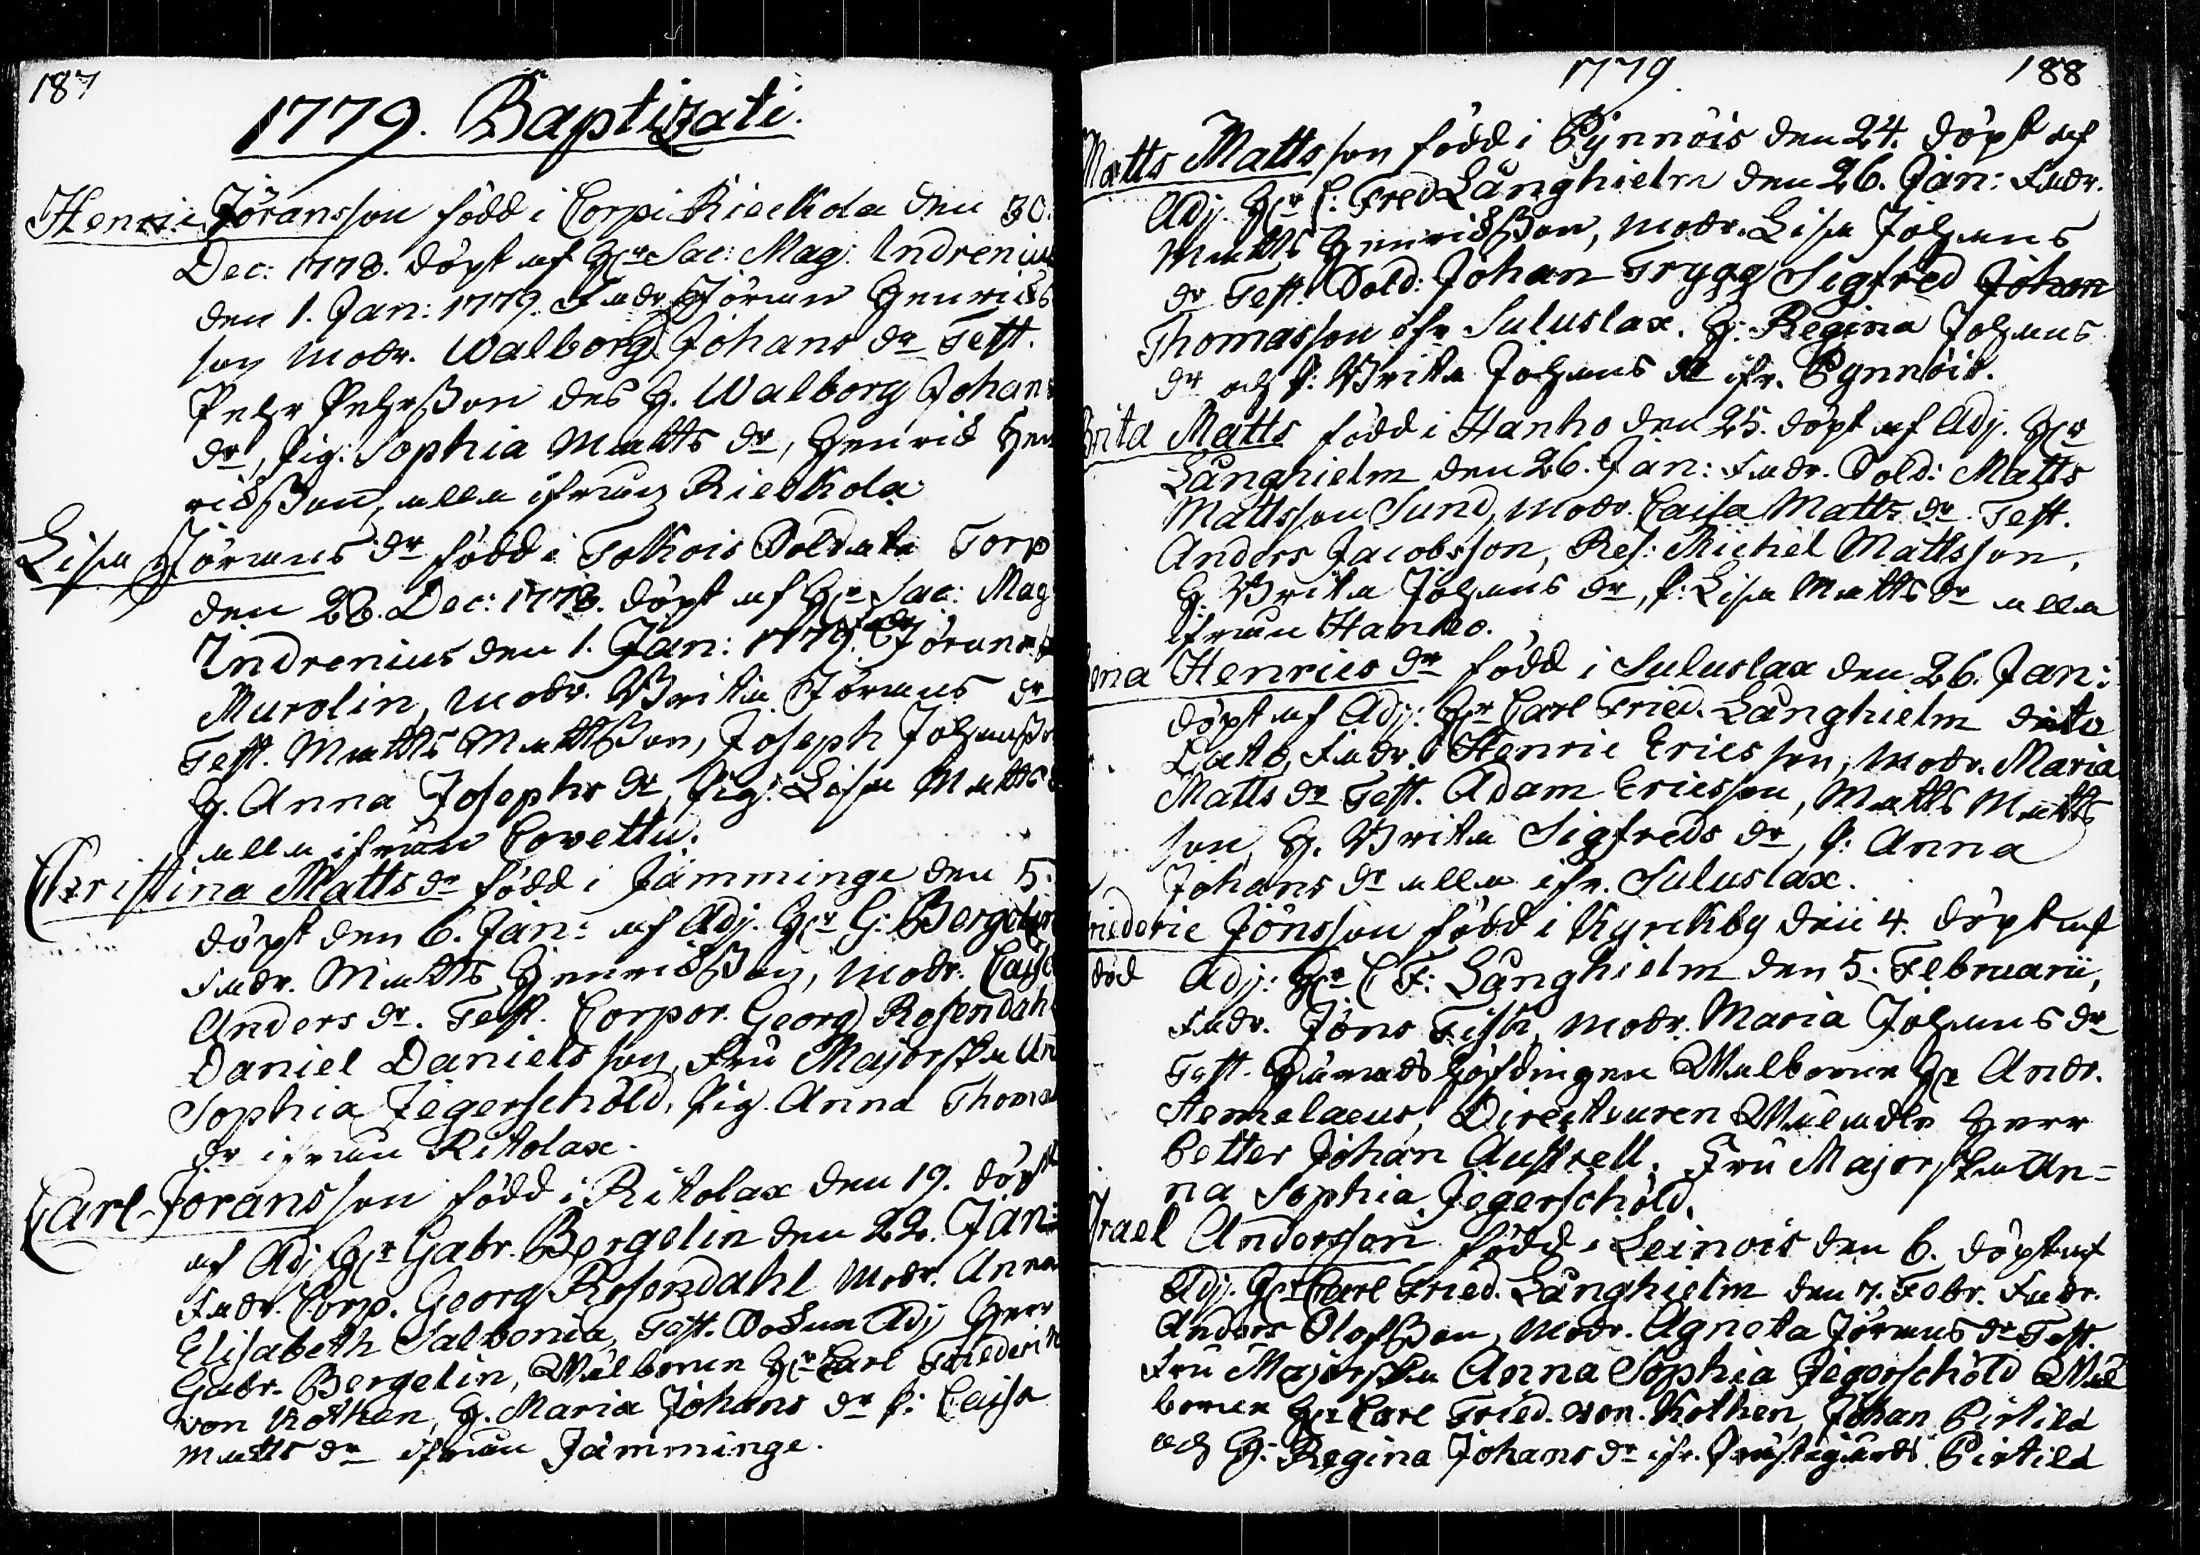 187
1779. Baptizati.
Henric Jöransson född i Corpi Rieckola den 30.
Dec: 1778. döpt af Hr Sac: Mag: Indrenius
den 1. Jan: 1779. Fadr. Jöran Henrics
son Modr. Walborg Johans dr Test.
Pehr Pehrsson des H. Walborg Johans
dr, Pig: Sophia Matts dr, Henric Hen
ricsson, alla ifrån Rieckola
Lisa Jörans dr född i Tolkois Soldate Torp
den 28. Dec: 1778. döpt af Hr Sac: Mag
Indrenius den 1. Jan: 1779. Fadr Jöran
Murolin, Modr. Brita Jörans dr
Test. Matts Mattsson, Joseph Johansson
H. Anna Josephs dr, Pig: Lisa Matts
alla ifrån Covettu.
Christina Matts dr född i Jämminge den 5.
döpt den 6. Jan: af Adj. Hr G: Bergelin
Fadr. Matts Henricsson, Modr. Caisa
Anders dr. Test. Corpor. Georg Rosendahl
Daniel Danielsson, Fru Majorska An
Sophia Jegerschöld, Pig. Anna Thomas
dr ifrån Ritolax.
Carl Joransson född i Ritolax den 19. döpt
af Adj Hr Gabr. Bergelin den 22. Jan:
Fadr. Corp. Georg Rosendahl Modr. Anna
Elisabeth Salbonia, Test. Adj Herr
Gabr. Bergelin, Wälborne Hr Carl Friederic
von Kothen, H. Maria Johans dr P: Caisa
Matts dr ifrån Jämminge.
1779. 188
Matts Mattsson född i Pynnöis den 24. döpt af
Adj. Hr C: Fred Långhielm den 26. Jan: Fadr.
Matts Henricsson, Modr. Lisa Johans
dr Test. Sold: Johan Trygg Sigfred Johan
Thomasson ifr Suluslax. H: Regina Johans
dr och P: Brita Johans dr ifr. Pynnöis.
Brita Matts född i Hanho den 25. döpt af Adj. Hr
Långhielm den 26. Jan: Fadr. Sold: Matts
Mattsson Sund, Modr. Caisa Matts dr. Test.
Anders Jacobsson, Res: Michel Mattsson,
H: Brita Johans dr, P: Lisa Matts dr alla
ifrån Hanho.
ena Henrics dr född i Suluslax den 26. Jan:
döpt af Adj: Hr Carl Fried. Långhielm dito
Dato, Fadr. Henric Ericsson, Modr. Maria
Matts dr Test. Adam Ericsson, Matts Matts
son, H. Brita Sigfreds dr, P: Anna
Johans dr alla ifr. Suluslax.
Friederic Jönsson född i Kyrckby den 4. döpt af
död Adj: Hr C F: Långhielm den 5. Februarii,
Fadr. Jöns Fisk, Modr. Maria Johans dr
Test. Häradshöfdingen Wälborne Hr Andr.
Hemelaeus, Directeuren Wäladle Herr
Petter Johan Austrell. Fru Majorska An=
na Sophia Jegerschöld.
Israel Andersson född i Leinois den 6. döpt af
Adj. Hr Carl Fried. Långhielm den 7. Febr. Fadr.
Anders Olofsson, Modr. Agneta Jörans dr Test.
Fru Majorska Anna Sophia Jegerschöld Wäl
borne Hr Carl Fried. von Kothen, Johan Pirtilä
och H: Regina Johans dr ifr. Pirtilä